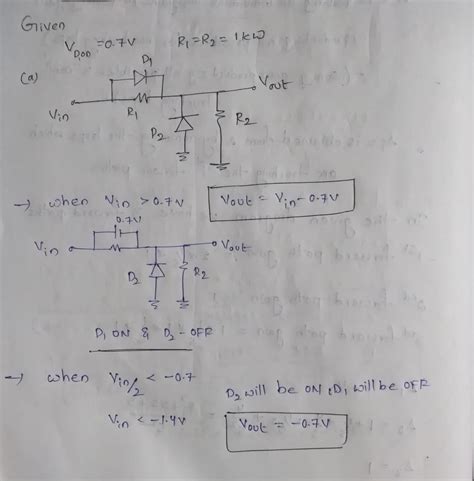 Given
V_D,on = 0.7V R1 = R2 = 1kω
(a)
D1
Vout
Vin
R1
D2
R2
→ when Vin > 0.7V
Vout = Vin - 0.7V
0.7V
Vin
Vout
D2
R2
D1 ON & D2 - OFF
→ when Vin/2 < -0.7
D2 will be ON, D1 will be OFF
Vin < -1.4V
Vout = -0.7V